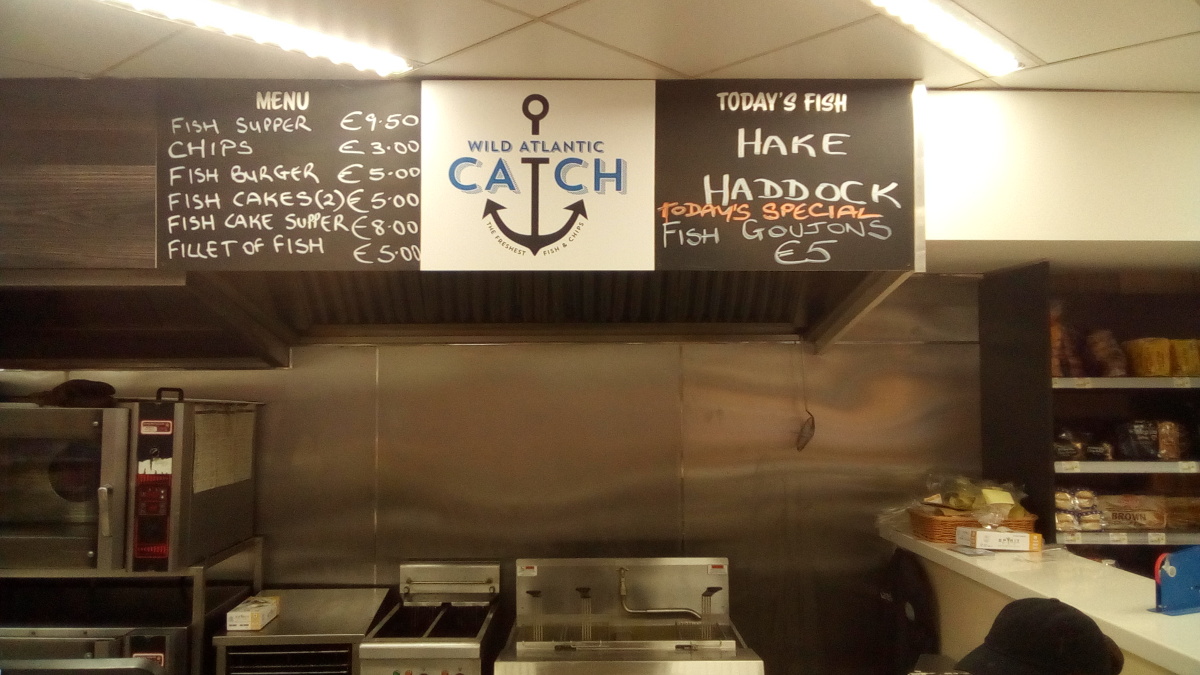 MENU
FISH SUPPER €9.50
CHIPS €3.00
FISH BURGER €5.00
FISH CAKES(2) €5.00
FISH CAKE SUPPER €8.00
FILLET OF FISH €5.00
WILD ATLANTIC
CATCH
THE FRESHEST FISH & CHIPS
TODAY'S FISH
HAKE
HADDOCK
TODAY'S SPECIAL
FISH GOUJONS
€5
BROWN